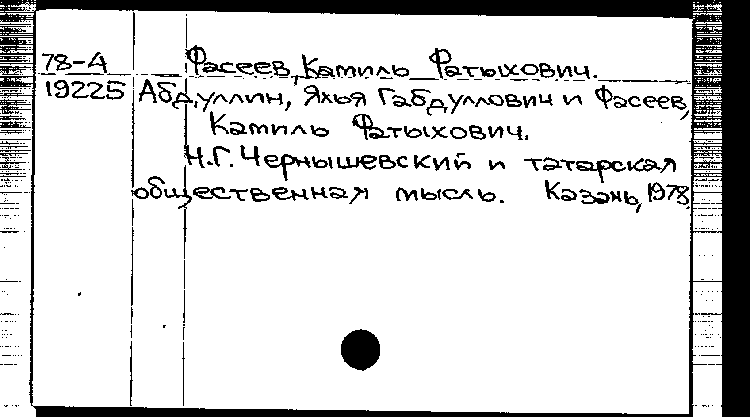 78-А Фасеев, Камиль Фатыхович.
19225 Абдуллин, Яхья Габдуллович и Фасеев,
Камиль Фатыхович.
Н.Г. Чернышевский и татарская
общественная мысль. Казань, 1978